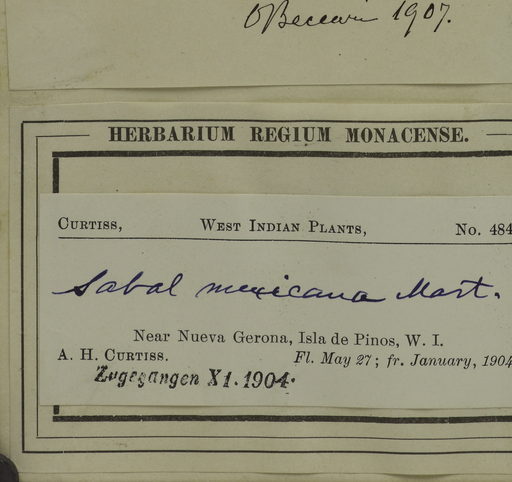 OBeccari 1907.
HERBARIUM REGIUM MONACENSE.
CURTISS, WEST INDIAN PLANTS, No. 484
Sabal mexicana Mart.
Near Nueva Gerona, Isla de Pinos, W. I.
A. H. CURTISS. Fl. May 27; fr. January, 1904
Zugegangen XI. 1904.